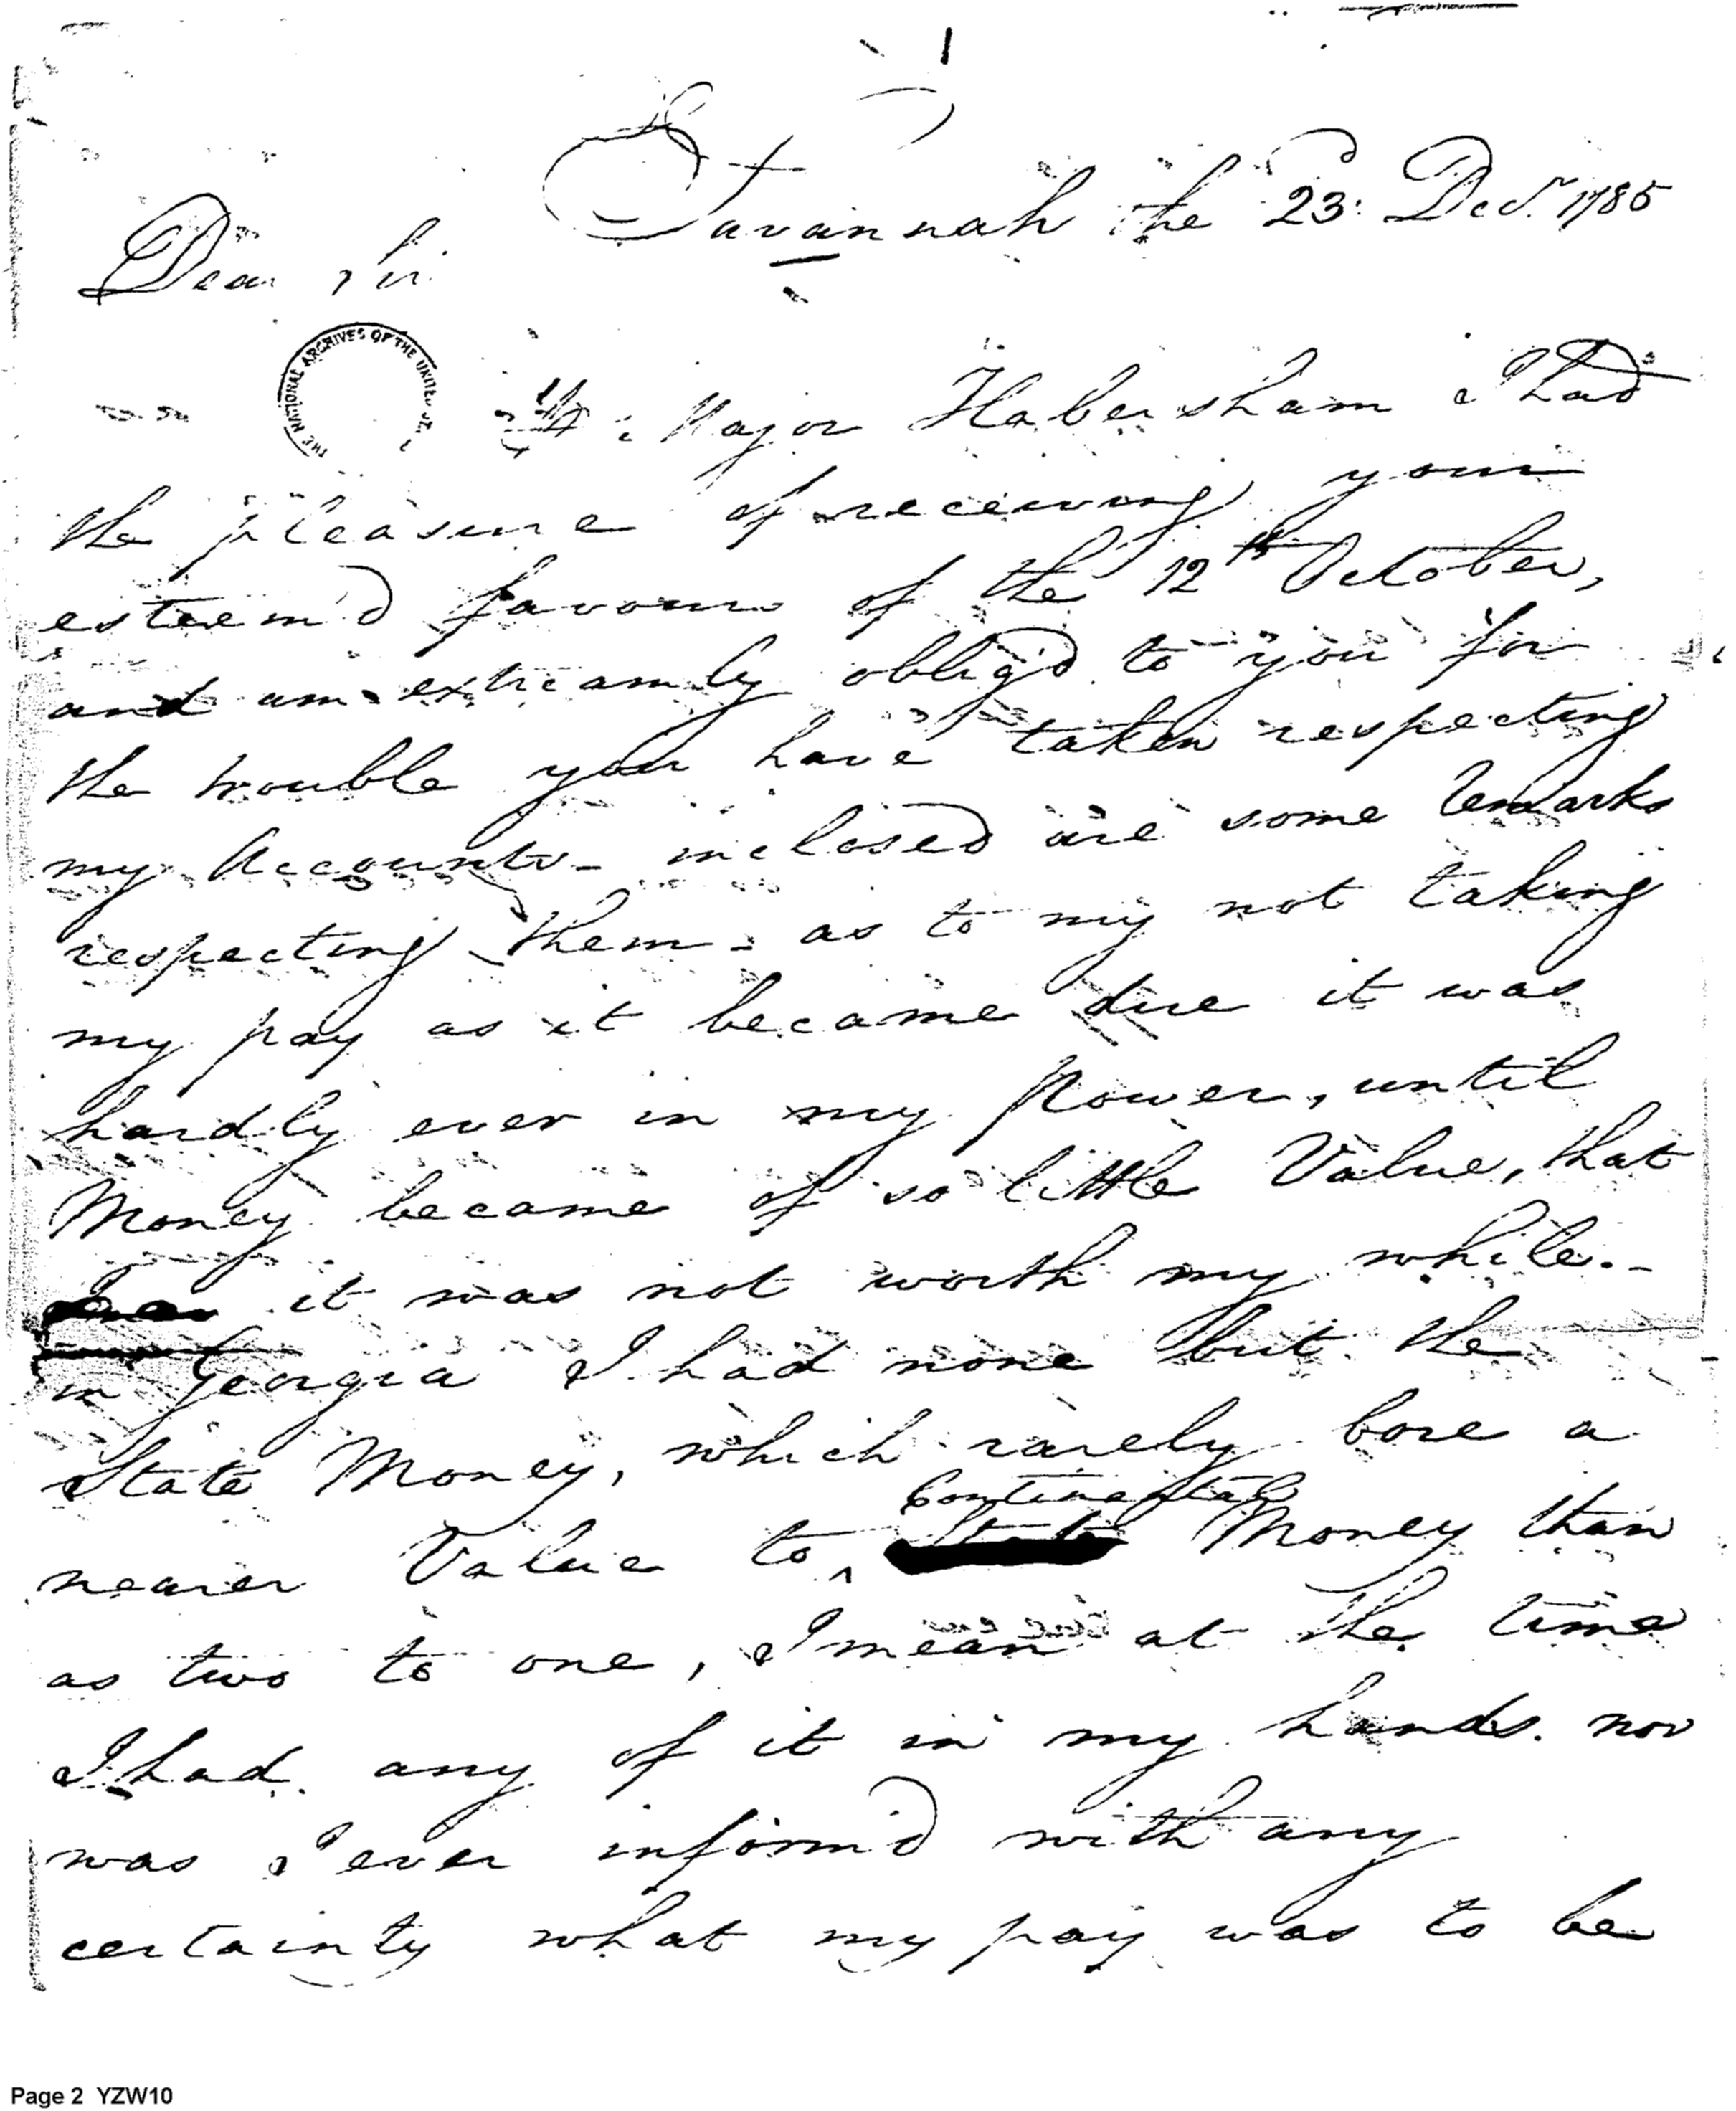 Savannah the 23d Decr. 1785
Dear Sir
THE NATIONAL ARCHIVES OF THE UNITED
Major Habersham I had
the pleasure of receiving your
esteem'd favour of the 12th October,
and am extreamly oblig'd to you for
the trouble you have taken respecting
my Accounts - inclosed are some Remarks
respecting them - as to my not taking
my pay as it became due it was
hardly ever in my power, until
Money became of so little Value, that
it was not worth my while. -
in Georgia I had none but the
State Money, which rarely bore a
Continental
nearer Value to ^ State Money than
as two to one, I mean at the time
I had any of it in my hands. nor
was I ever inform'd with any
certainty what my pay was to be
Page 2 YZW10